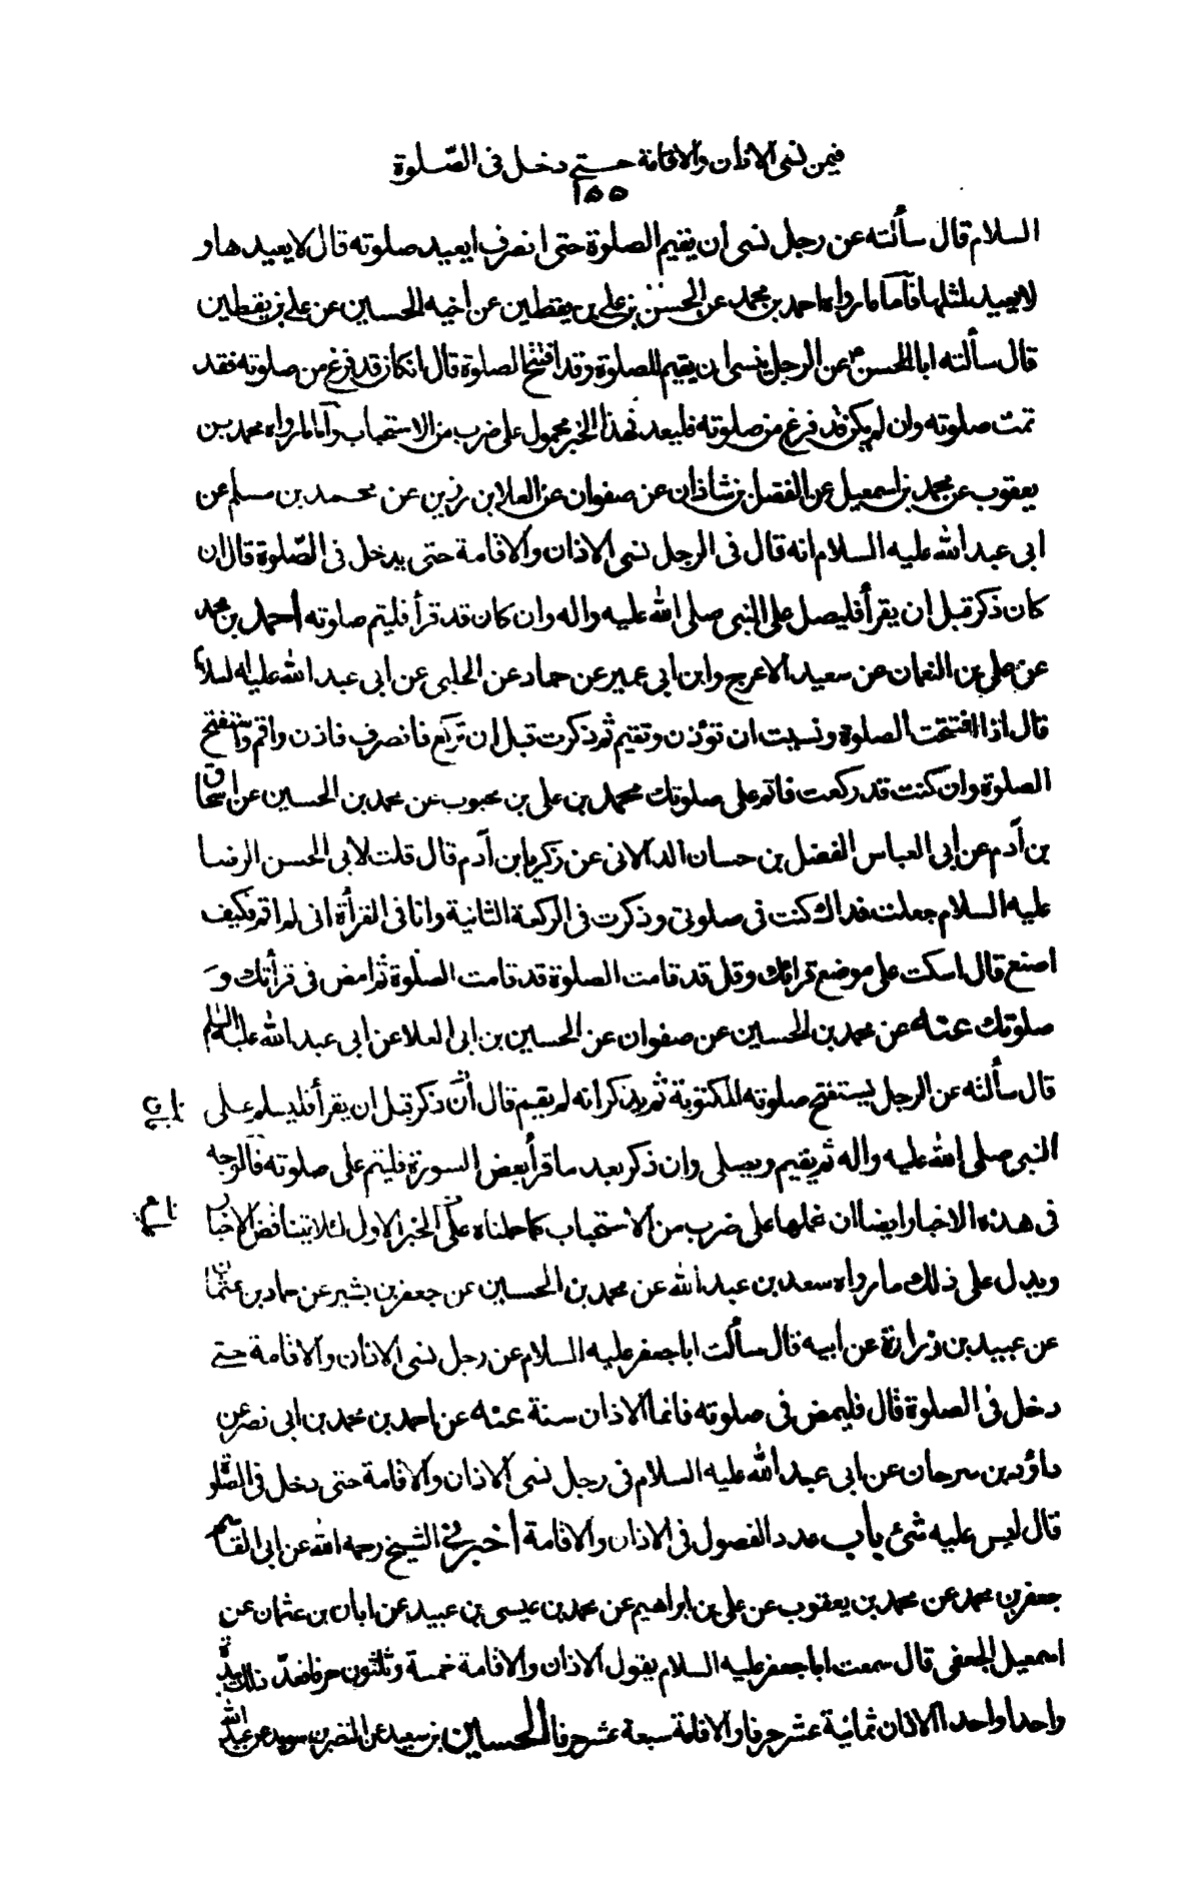 فيمن نسى الاذان والاقامة حتى دخل فى الصّلوة
١٥٥
السلام قال سألته عن رجل نسى أن يقيم الصلوة حتى انصرف ايعيد صلوته قال لا يعيدها و
لا يعيد لمثلها فأما ما رواه احمد بن محمد عن الحسن بن على بن يقطين عن اخيه الحسين عن على بن يقطين
قال سألته ابا الحسن ع عن الرجل ينسى ان يقيم للصلوة وقد افتتح الصلوة قال ان كان قد فرغ من صلوته فقد
تمت صلوته وان لم يكن قد فرغ من صلوته فليعد فهذا الخبر محمول على ضرب من الاستحباب وأما ما رواه محمد بن
يعقوب عن محمد بن اسمعيل عن الفضل بن شاذان عن صفوان عن العلا بن رزين عن محمد بن مسلم عن
ابى عبد الله عليه السلام انه قال فى الرجل نسى الاذان والاقامة حتى يدخل فى الصّلوة قال ان
كان ذكر قبل ان يقرأ فليصل على النبى صلى الله عليه واله وان كان قد قرأ فليتم صلوته احمد بن محمد
عن على بن النعمان عن سعيد الاعرج وابن ابى عمير عن حماد عن الحلبى عن ابى عبد الله عليه السلام
قال اذا افتتحت الصلوة ونسيت ان تؤذن وتقيم ثم ذكرت قبل ان تركع فانصرف فاذن واقم واستفتح
الصلوة وان كنت قد ركعت فاتم على صلوتك محمد بن على بن محبوب عن محمد بن الحسين عن اسحاق
بن آدم عن ابى العباس الفضل بن حسان الدالانى عن زكريا بن آدم قال قلت لابى الحسن الرضا
عليه السلام جعلت فداك كنت فى صلوتى وذكرت فى الركعة الثانية وانا فى القرأة انى لم اقم فكيف
اصنع قال اسكت على موضع قرائتك وقل قد قامت الصلوة قد قامت الصلوة ثم امض فى قرأتك و
صلوتك عنه عن محمد بن الحسين عن صفوان عن الحسين بن ابى العلا عن ابى عبد الله عليه السلم
قال سألته عن الرجل يستفتح صلوته المكتوبة ثم يذكر انه لم يقم قال ان ذكر قبل ان يقرأ فليسلم على
النبى صلى الله عليه واله ثم يقيم ويصلى وان ذكر بعد ما قرأ بعض السورة فليتم على صلوته فالوجه
فى هذه الاخبار ايضا ان نحملها على ضرب من الاستحباب كما حملناه على الخبر الاول لئلا يتناقض الاخبار
ويدل على ذلك ما رواه سعد بن عبد الله عن محمد بن الحسين عن جعفر بن بشير عن حماد بن عثمان
عن عبيد بن زرارة عن ابيه قال سألت ابا جعفر عليه السلام عن رجل نسى الاذان والاقامة حتى
دخل فى الصلوة قال فليمض فى صلوته فانما الاذان سنة عنه عن احمد بن محمد بن ابى نصر عن
داؤد بن سرحان عن ابى عبد الله عليه السلام فى رجل نسى الاذان والاقامة حتى دخل فى الصّلوة
قال ليس عليه شئ باب عدد الفصول فى الاذان والاقامة اخبرنى الشيخ رحمه الله عن ابى القاسم
جعفر بن محمد عن محمد بن يعقوب عن على بن ابراهيم عن محمد بن عيسى بن عبيد عن ابان بن عثمان عن
اسمعيل الجعفى قال سمعت ابا جعفر عليه السلام يقول الاذان والاقامة خمسة وثلثون حرفا فعدّ ذلك بيده
واحدا واحدا الاذان ثمانية عشر حرفا والاقامة سبعة عشر حرفا الحسين بن سعيد عن النضر بن سويد عن عبد الله